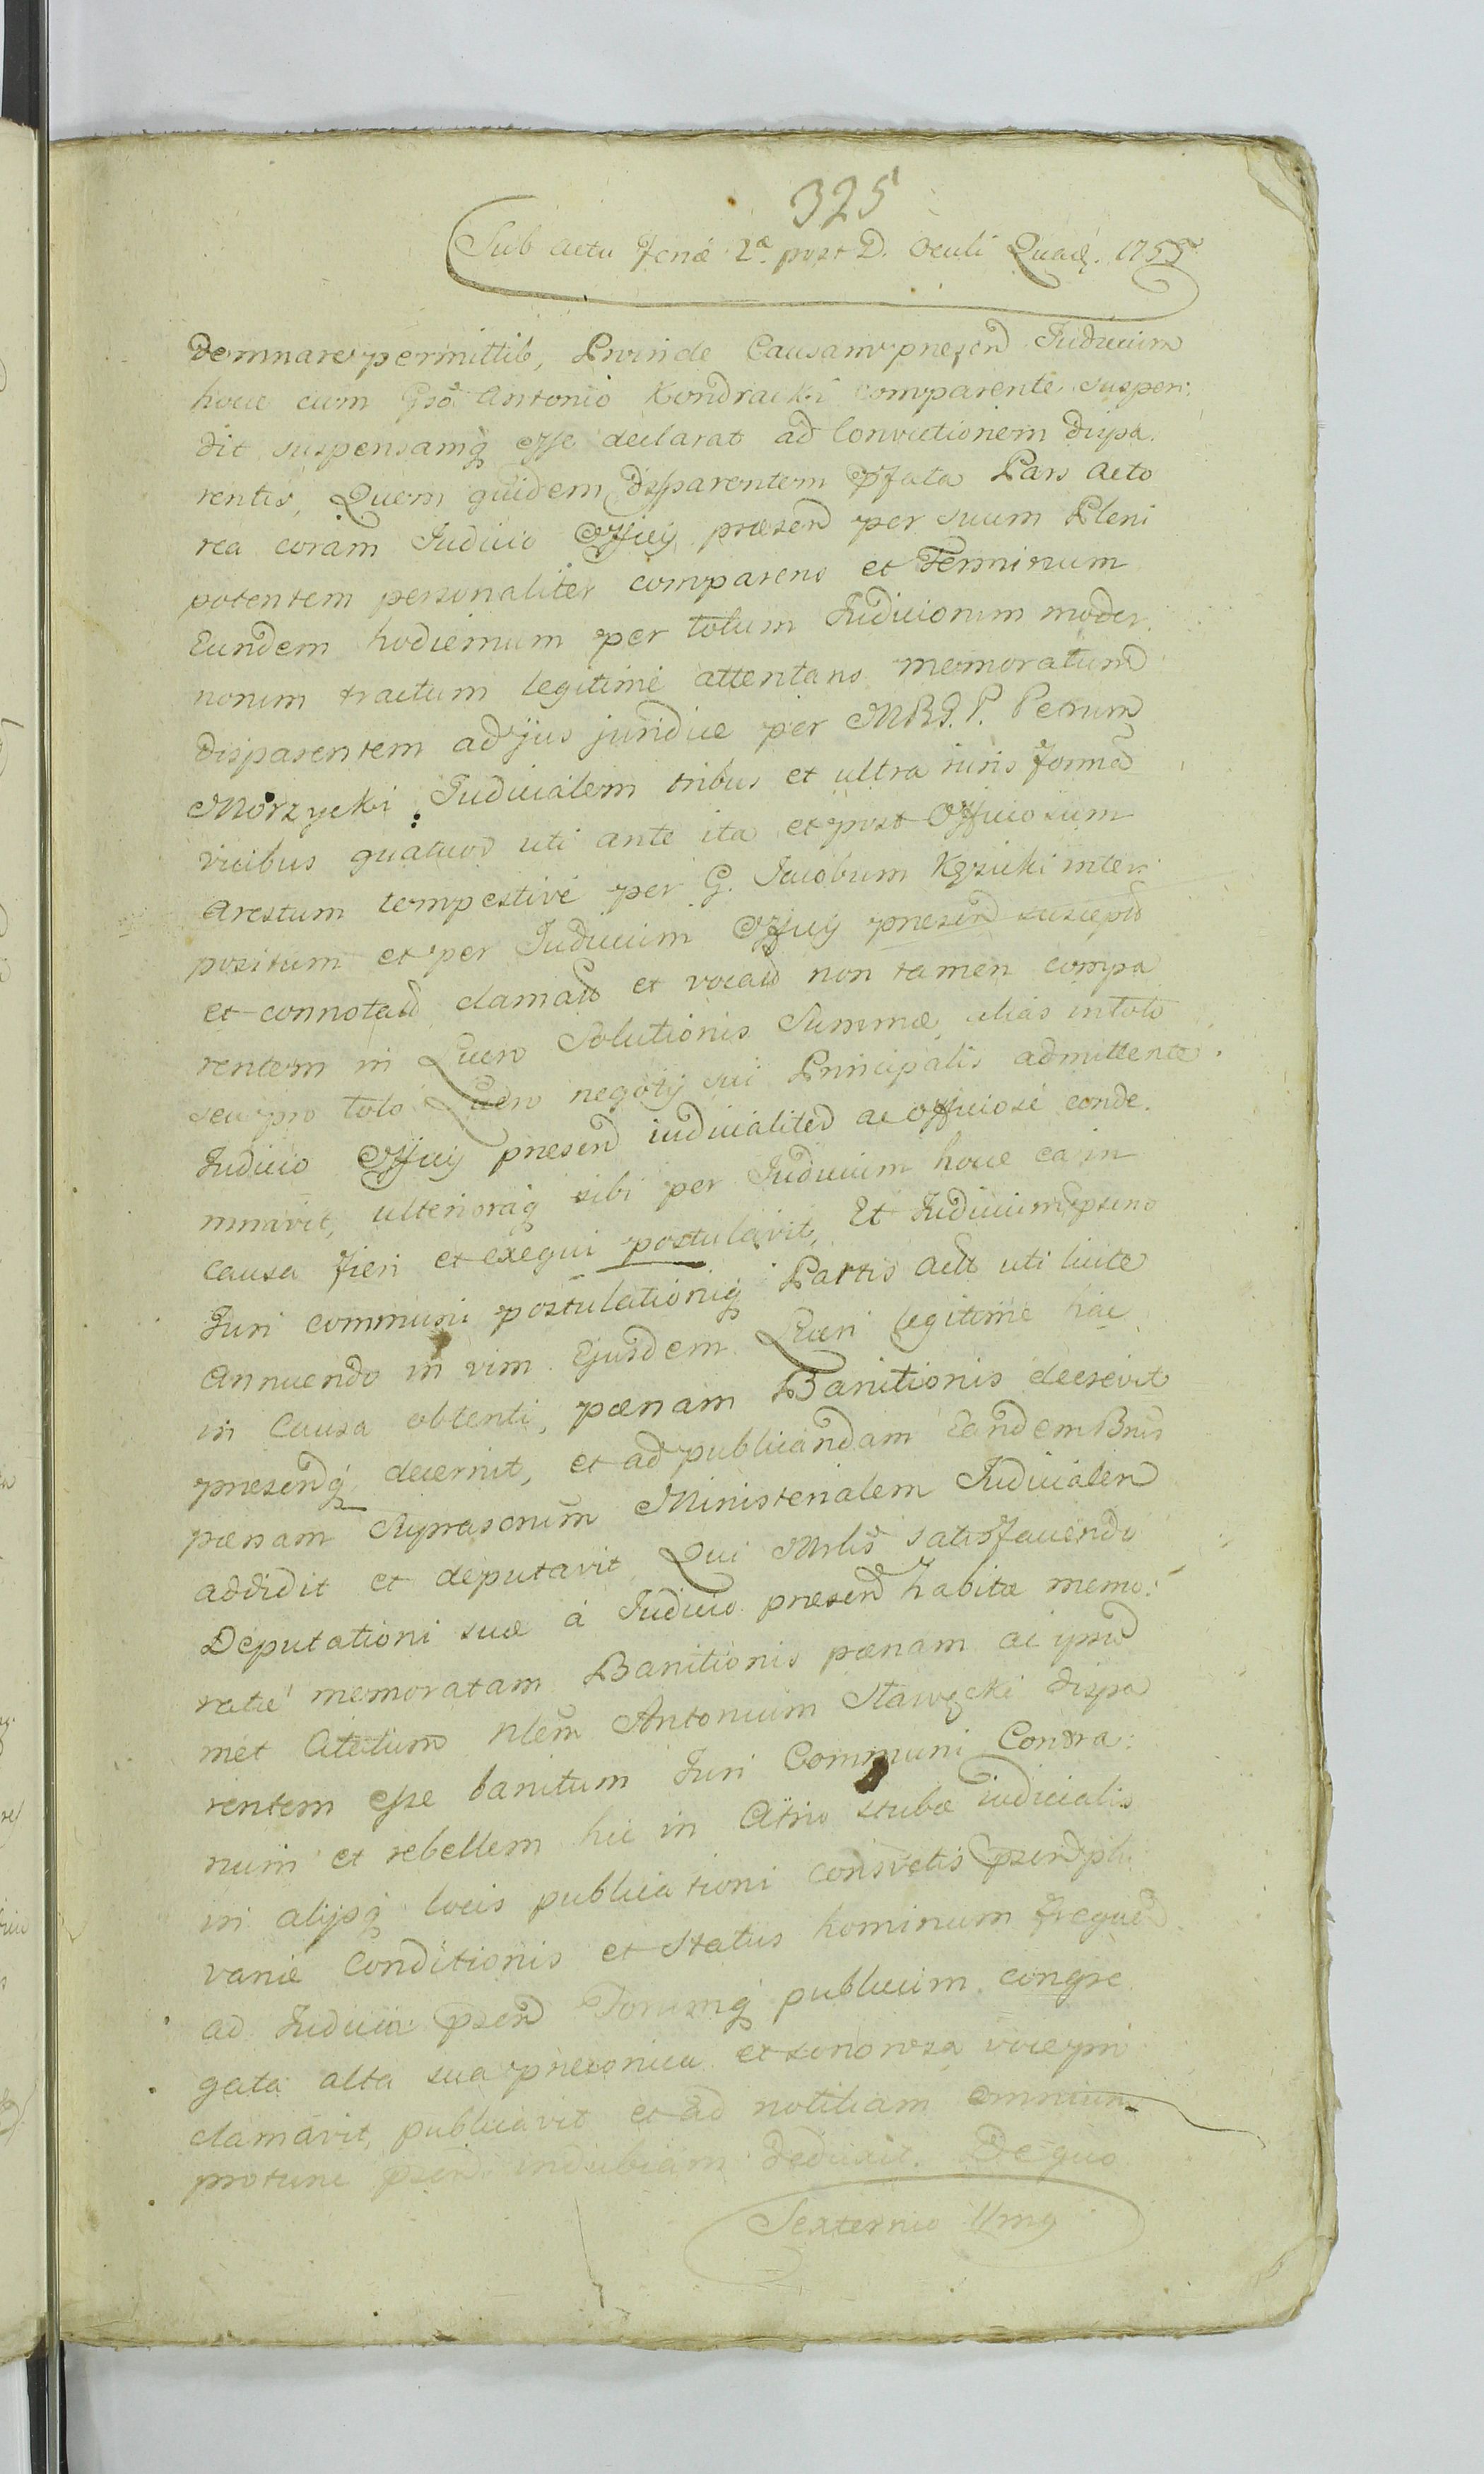 325
Sub actu feriæ 2æ post D. Oculi Quadr. 1755
demnare permittit, Proinde Causam presen Judicium
hocce cum Gso Antonio Kondracki comparente suspen:
dit suspensamq esse declarat ad Convictionem dispa.
rentis, Quem quidem disparentem pfata Pars Acto
rea coram Judicio Officij præsen per suum Pleni
potentem personaliter comparens et Terminum
Eundem hodiernum per totum Judiciorum moder.
norum tractum legitime attentans memoratum
disparentem ad jus juridice per MRJ. P. Petrum
Morzycki Judicialem tribus et ultra iuris forma
vicibus quatuor uti ante ita et post Officiosum
Arestum tempestive per G. Jacobum inter:
positum et per Judicium Officij presen suscept
et connotat clamat et vocat non tamen compa
rentem in Lucro Solutionis Summæ alias in toto
seu pro toto Lucro negotij sui Principalis admittente.
Judicio Officij presen iudicialiter ac officiose conde.
mnavit, ulterioraq sibi per Judicium hocce ea in
causa fieri et exequi postulavit, Et Judicium psens
Juri communi postulationiq Partis Act uti licite
Annuendo in vim Ejusdem Lucri legitime hac
in Causa obtenti, pœnam Banitionis decrevit
presenq decernit, et ad publicandam Eandem Bnis
pœnam Suprascrium Ministerialem Judicialem
addidit et deputavit Qui Mrlis satisfaciendo
Deputationi suæ à Judicio præsen habitæ memo:
ratæ memoratam Banitionis pœnam ac ipsu
met Citatum Nlem Antonium Stawęcki dispa
rentem esse banitum Juri Communi Contra:
rium et rebellem hic in Atrio stubæ iudicialis
in alijsq locis publicationi consvetis psen plu
variæ Conditionis et Status hominum frequen
ad Judicia psen Forumq publicum congre
gata alta sua præconica et sonorosa voce pro
clamavit, publicavit et ad notitiam omnium
protunc psen indubiam deduxit. De quo
Sexternio